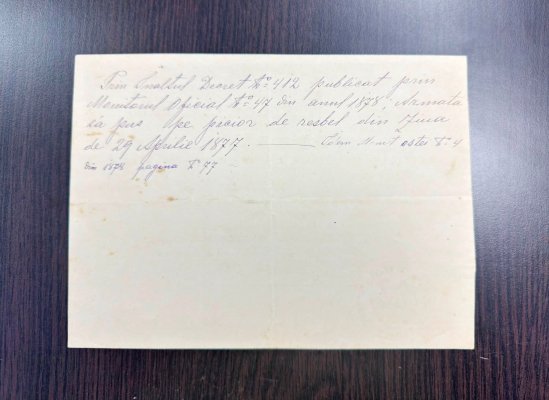 Prin Inaltul Decret No 412 publicat prin
Monitorul Oficial No 47 din anul 1878, Armata
s'a pus pe picior de resbel din ziua
de 29 Aprilie 1877. — Mnit. ostei No 4
din 1878 pagina No 77